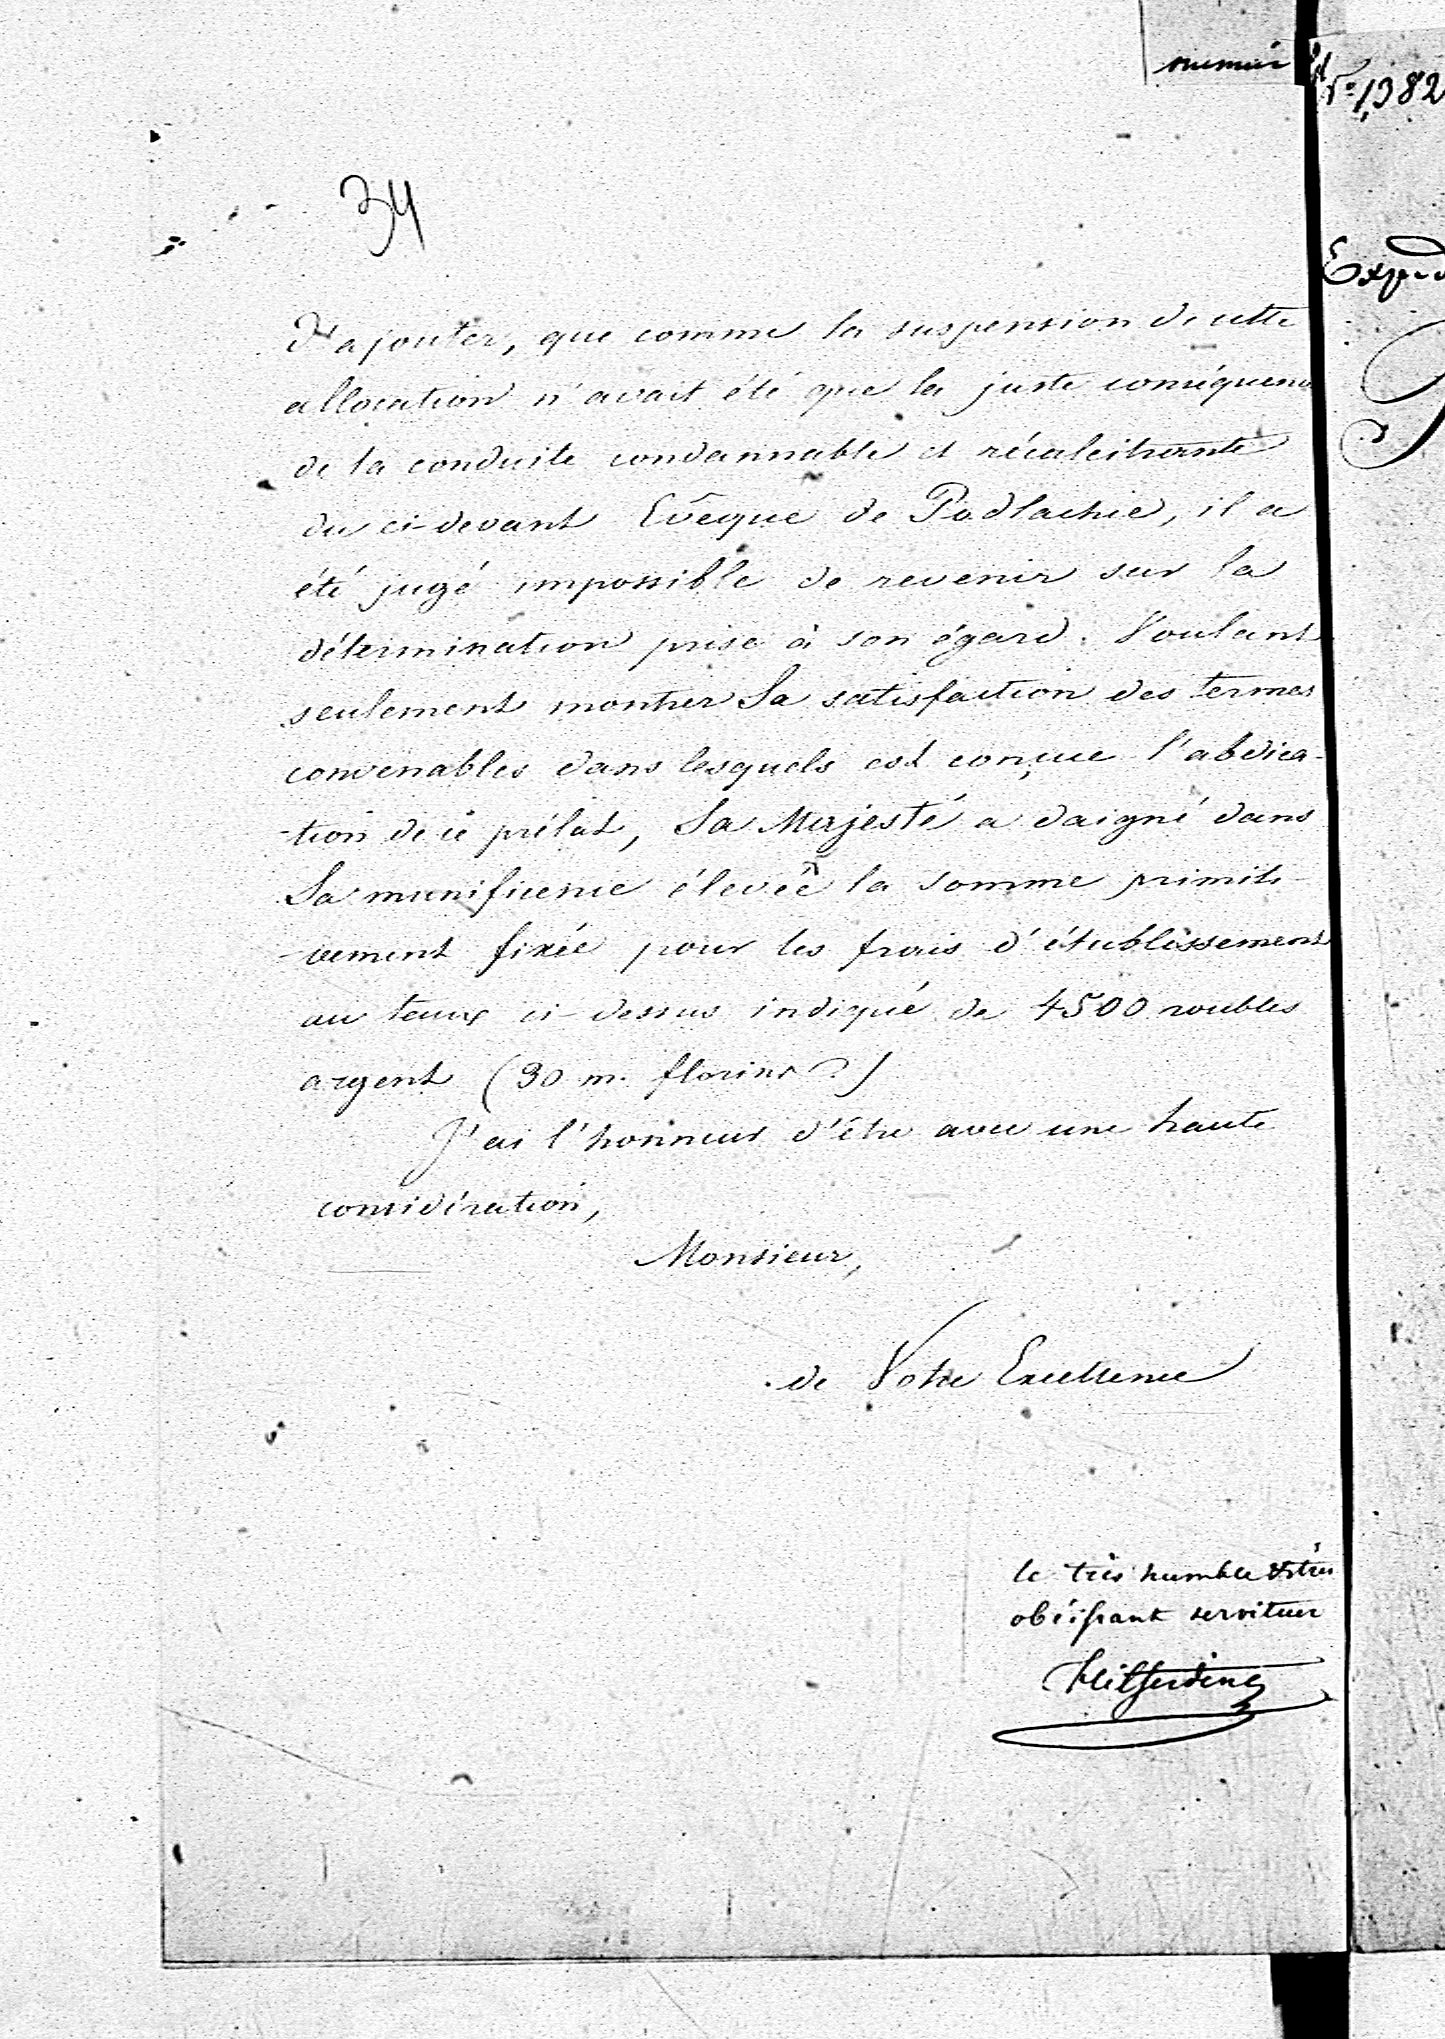 34
d'ajouter, que comme la suspension de cette
allocation n'avait été que la juste conséquence
de la conduite condannable et récalcitrante
du ci-devant Evêque de Podlachie, il a
été jugé impossible de revenir sur la
détermination prise à son égard. Voulant
seulement montrer Sa satisfaction des termes
convenables dans lesquels est conçue l'abdica-
-tion de ce prélat, Sa Majesté a daigné dans
Sa munificence élevée la somme primiti-
-vement fixée pour les frais d'établissement
au taux ci-dessus indiqué de 4500 roubles
argent (30 m. florins P.)
J'ai l'honneur d'être avec une haute
considération,
Monsieur,
de Votre Excellence
le très humble & très
obéissant serviteur
Hilferding
No 1382